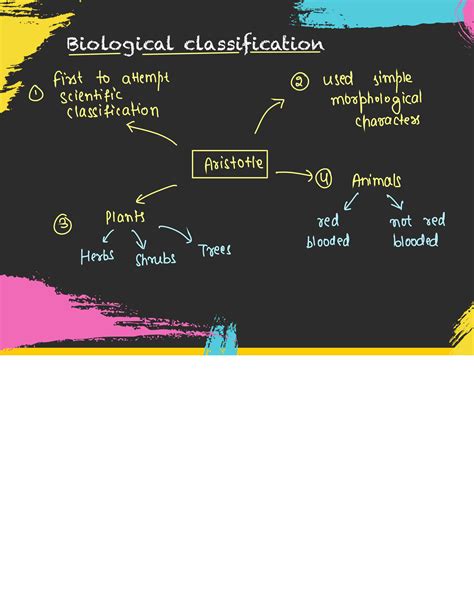 Biological classification
① first to attempt
scientific
classification
② used simple
morphological
characters
Aristotle
③ Plants
Herbs Shrubs Trees
④ Animals
red
blooded
not red
blooded